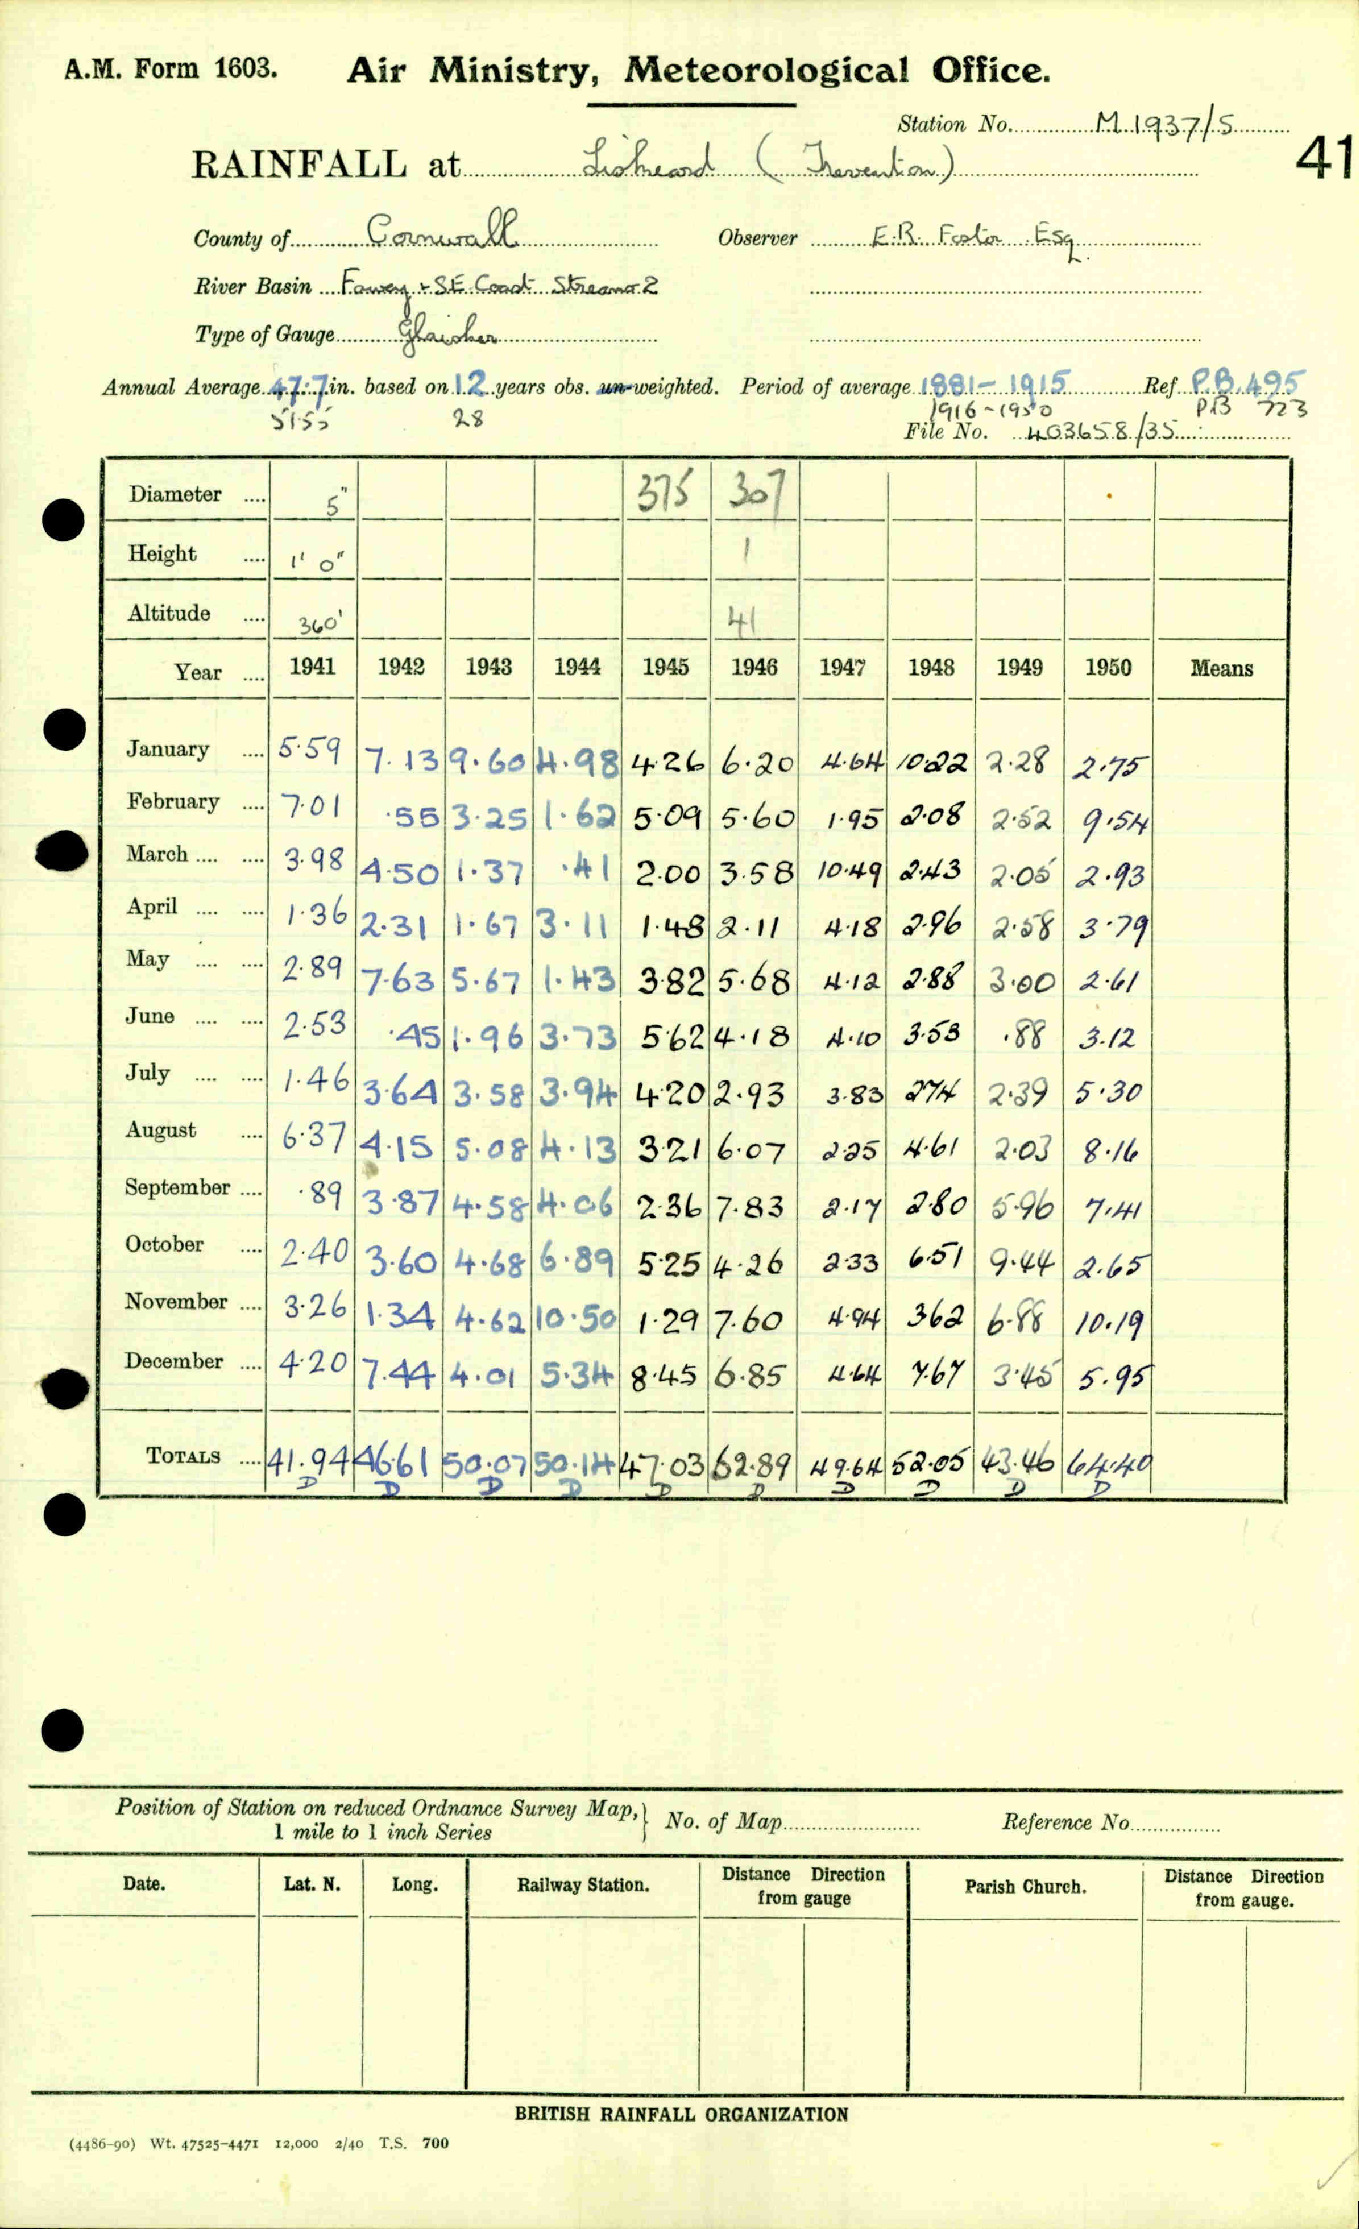 A.M. Form 1603. Air Ministry, Meteorological Office.
Station No. M 1937/5
41
RAINFALL at Liskeard (Trevention)
County of Cornwall Observer E.R. Foster Esq.
River Basin Fowey + SE Coast Streams 2
Type of Gauge Glaisher
Annual Average 47.7 in. based on 12 years obs. un-weighted. Period of average 1881-1915 Ref P.B. 495
51.55 28 1916-1950 PB 723
File No. 403658/35
Diameter .... 5" 375 307
Height .... 1' 0" 1
Altitude .... 360' 41
Year .... 1941 1942 1943 1944 1945 1946 1947 1948 1949 1950 Means
January .... 5.59 7.13 9.60 4.98 4.26 6.20 4.64 10.22 2.28 2.75
February .... 7.01 .55 3.25 1.62 5.09 5.60 1.95 2.08 2.52 9.54
March .... .... 3.98 4.50 1.37 .41 2.00 3.58 10.49 2.43 2.05 2.93
April .... .... 1.36 2.31 1.67 3.11 1.48 2.11 4.18 2.96 2.58 3.79
May .... .... 2.89 7.63 5.67 1.43 3.82 5.68 4.12 2.88 3.00 2.61
June .... .... 2.53 .45 1.96 3.73 5.62 4.18 4.10 3.53 .88 3.12
July .... .... 1.46 3.64 3.58 3.94 4.20 2.93 3.83 2.74 2.39 5.30
August .... 6.37 4.15 5.08 4.13 3.21 6.07 2.25 4.61 2.03 8.16
September .... .89 3.87 4.58 4.06 2.36 7.83 2.17 2.80 5.96 7.41
October .... 2.40 3.60 4.68 6.89 5.25 4.26 2.33 6.51 9.44 2.65
November .... 3.26 1.34 4.62 10.50 1.29 7.60 4.94 3.62 6.88 10.19
December .... 4.20 7.44 4.01 5.34 8.45 6.85 4.64 7.67 3.45 5.95
TOTALS .... 41.94 46.61 50.07 50.14 47.03 62.89 49.64 52.05 43.46 64.40
D D D D D D D D D D
Position of Station on reduced Ordnance Survey Map, } No. of Map Reference No.
1 mile to 1 inch Series
Date. Lat. N. Long. Railway Station. Distance Direction from gauge Parish Church. Distance Direction from gauge.
BRITISH RAINFALL ORGANIZATION
(4486-90) Wt. 47525-4471 12,000 2/40 T.S. 700